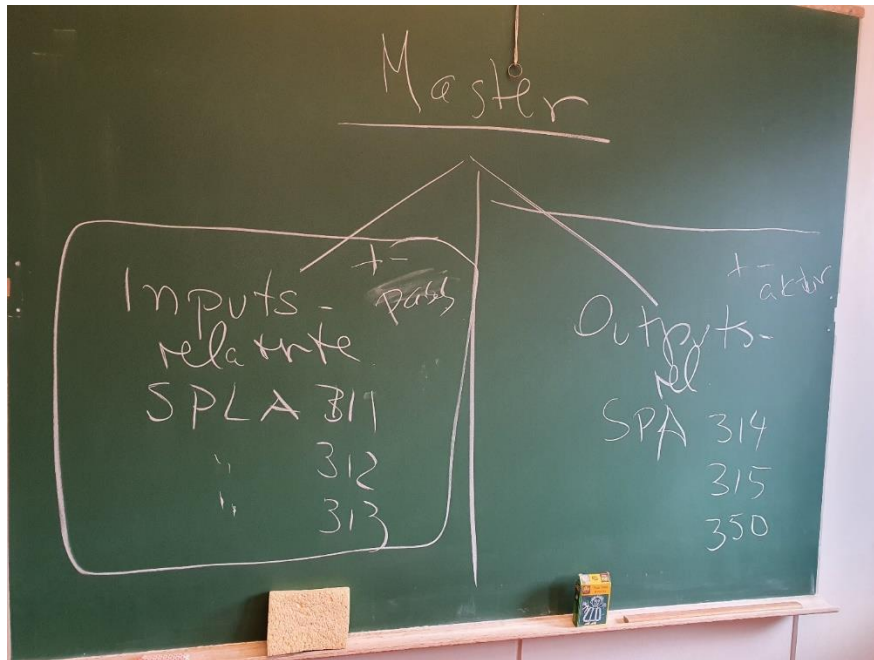 Master
+-
Inputs-
relaterte
SPLA 311
" 312
" 313
+-
Outputs-
rel
SPA 314
315
350